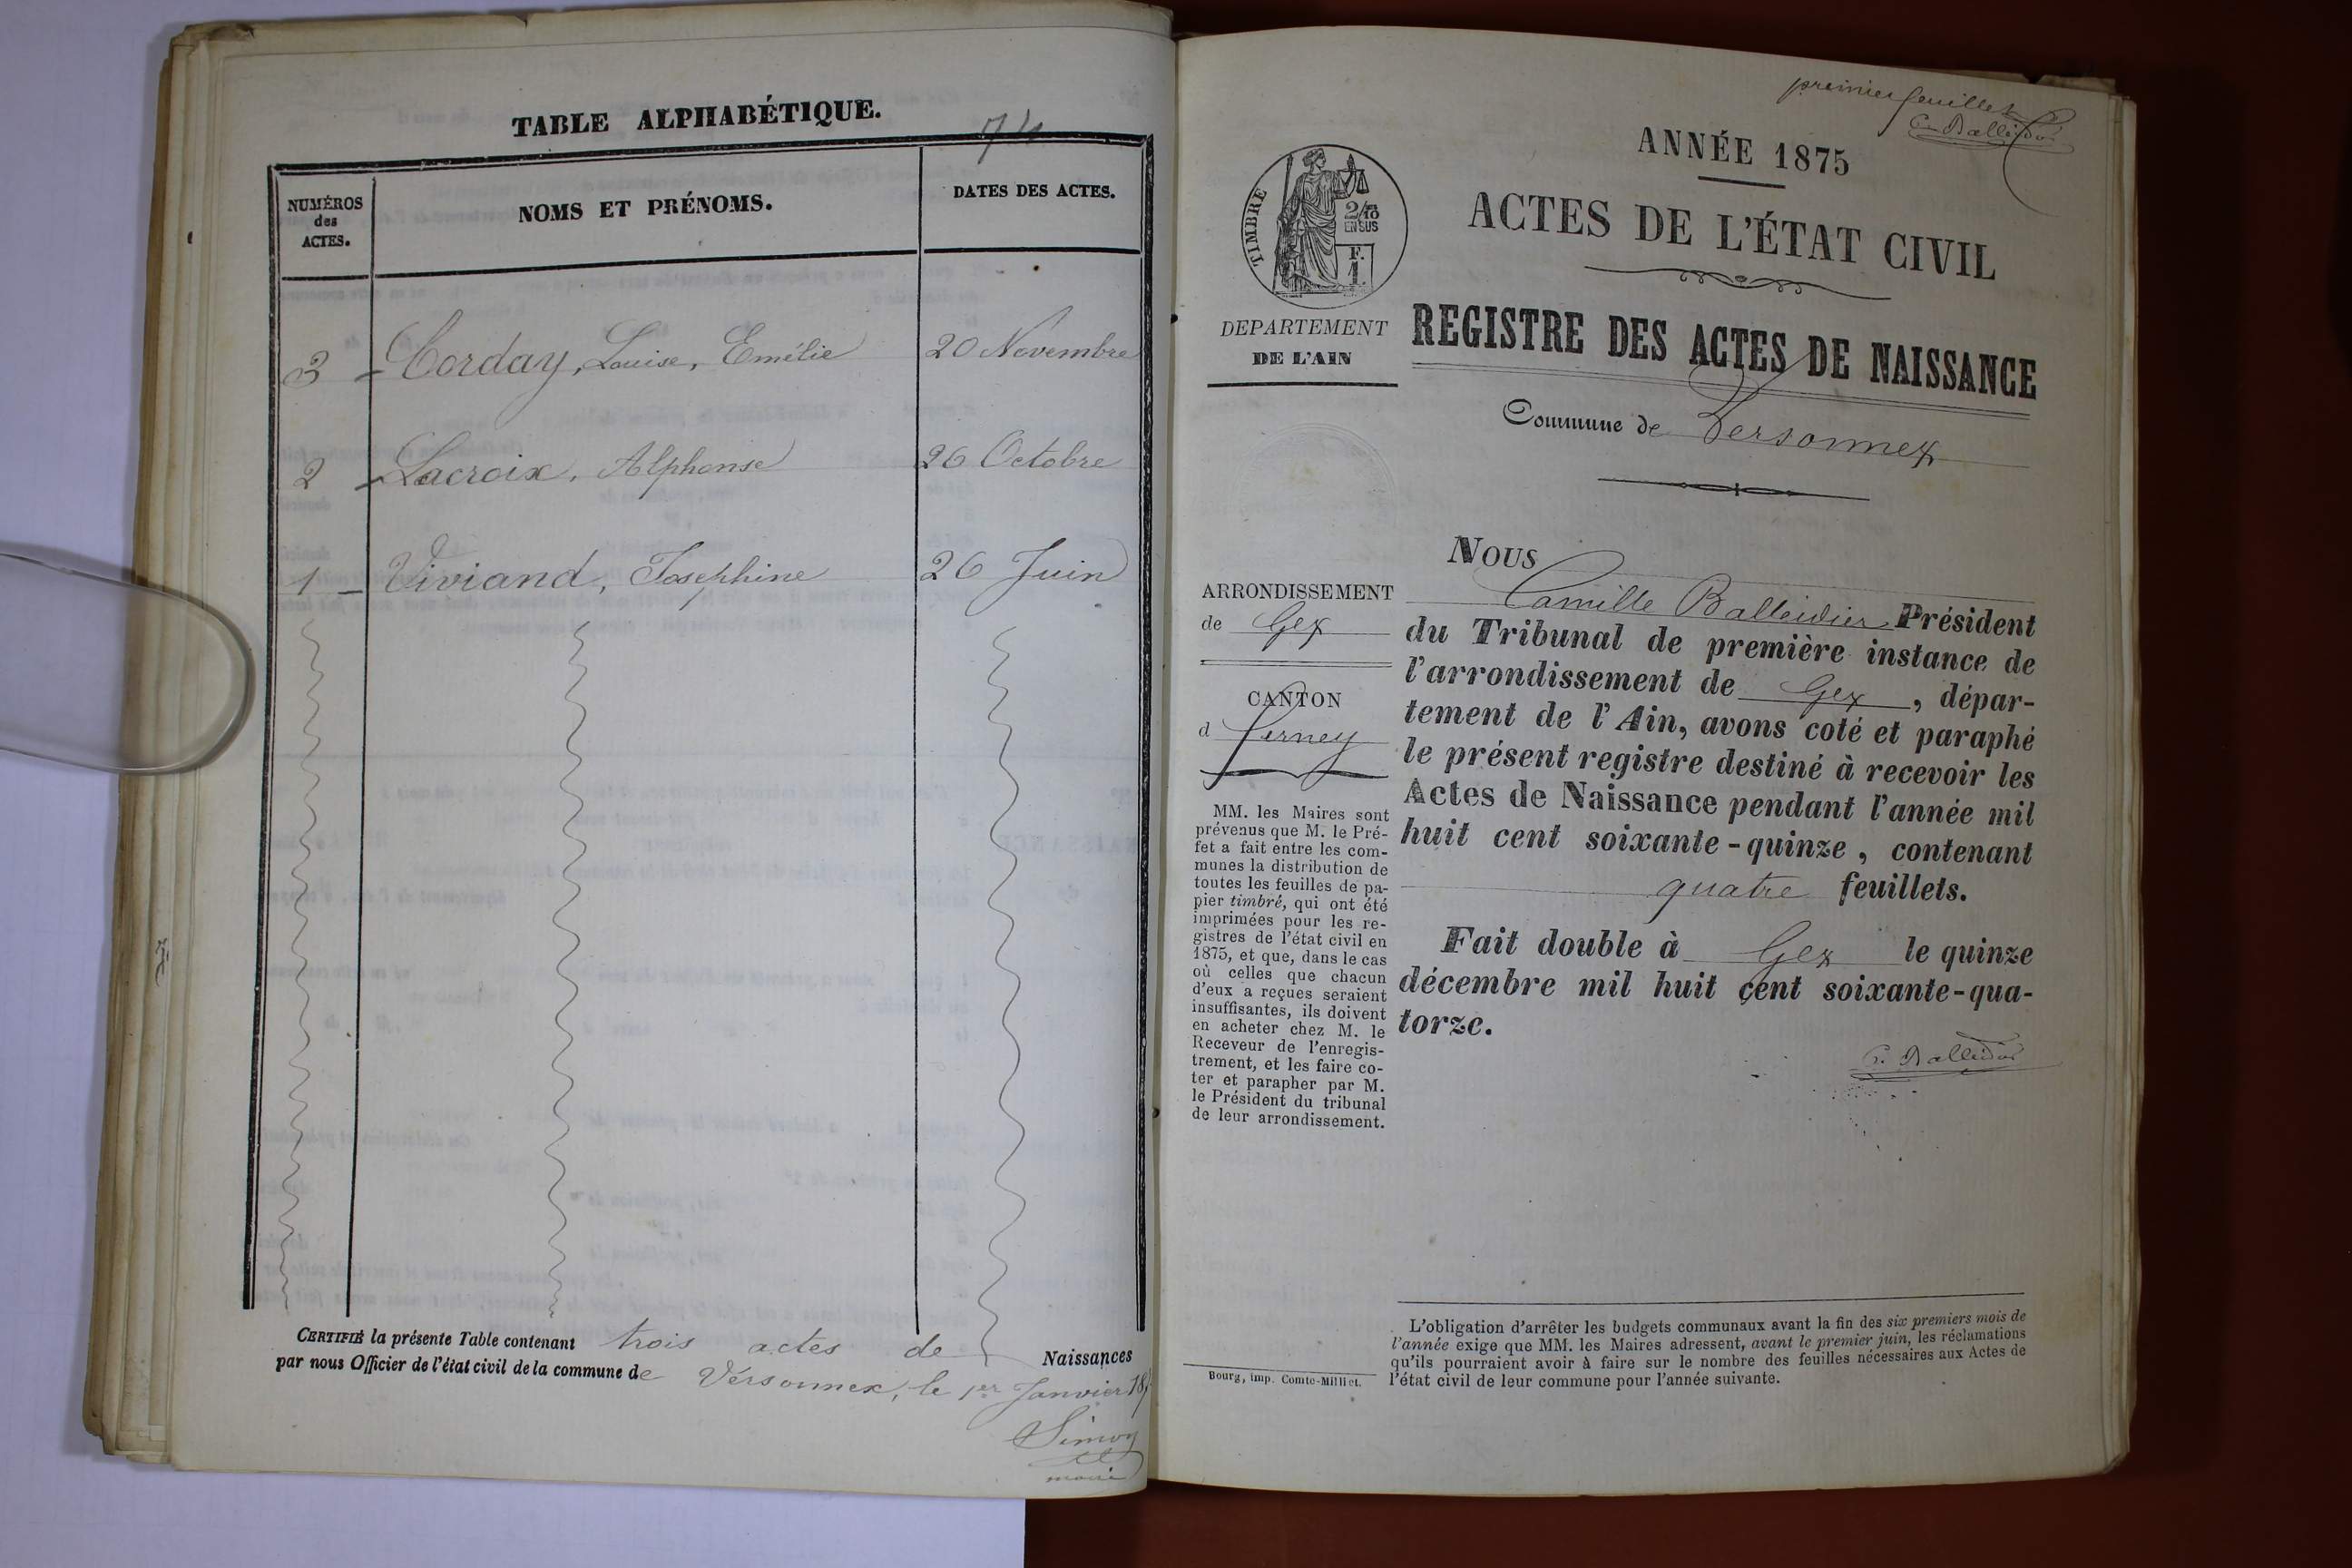 TABLE ALPHABÉTIQUE.
74
NUMÉROS
des
ACTES.
NOMS ET PRÉNOMS.
DATES DES ACTES.
3 Corday, Louise, Emélie 20 Novembre
2 Lacroix, Alphonse 26 Octobre
1 Viviand, Josephine 26 Juin
CERTIFIÉ la présente Table contenant trois actes de Naissances
par nous Officier de l'état civil de la commune de Versonnex, le 1er Janvier 187
Simon
maire
premier feuillet
C. Balleidier
ANNÉE 1875
ACTES DE L'ÉTAT CIVIL
REGISTRE DES ACTES DE NAISSANCE
Commune de Versonnex
TIMBRE
2/10
EN SUS
F.
1
DEPARTEMENT
DE L'AIN
ARRONDISSEMENT
de Gex
CANTON
d Ferney
MM. les Maires sont
prévenus que M. le Pré-
fet a fait entre les com-
munes la distribution de
toutes les feuilles de pa-
pier timbré, qui ont été
imprimées pour les re-
gistres de l'état civil en
1875, et que, dans le cas
où celles que chacun
d'eux a reçues seraient
insuffisantes, ils doivent
en acheter chez M. le
Receveur de l'enregis-
trement, et les faire co-
ter et parapher par M.
le Président du tribunal
de leur arrondissement.
NOUS
Camille Balleidier Président
du Tribunal de première instance de
l'arrondissement de Gex, dépar-
tement de l'Ain, avons coté et paraphé
le présent registre destiné à recevoir les
Actes de Naissance pendant l'année mil
huit cent soixante-quinze, contenant
quatre feuillets.
Fait double à Gex le quinze
décembre mil huit cent soixante-qua-
torze.
C. Balleidier
Bourg, imp. Comte-Milliet.
L'obligation d'arrêter les budgets communaux avant la fin des six premiers mois de
l'année exige que MM. les Maires adressent, avant le premier juin, les réclamations
qu'ils pourraient avoir à faire sur le nombre des feuilles nécessaires aux Actes de
l'état civil de leur commune pour l'année suivante.